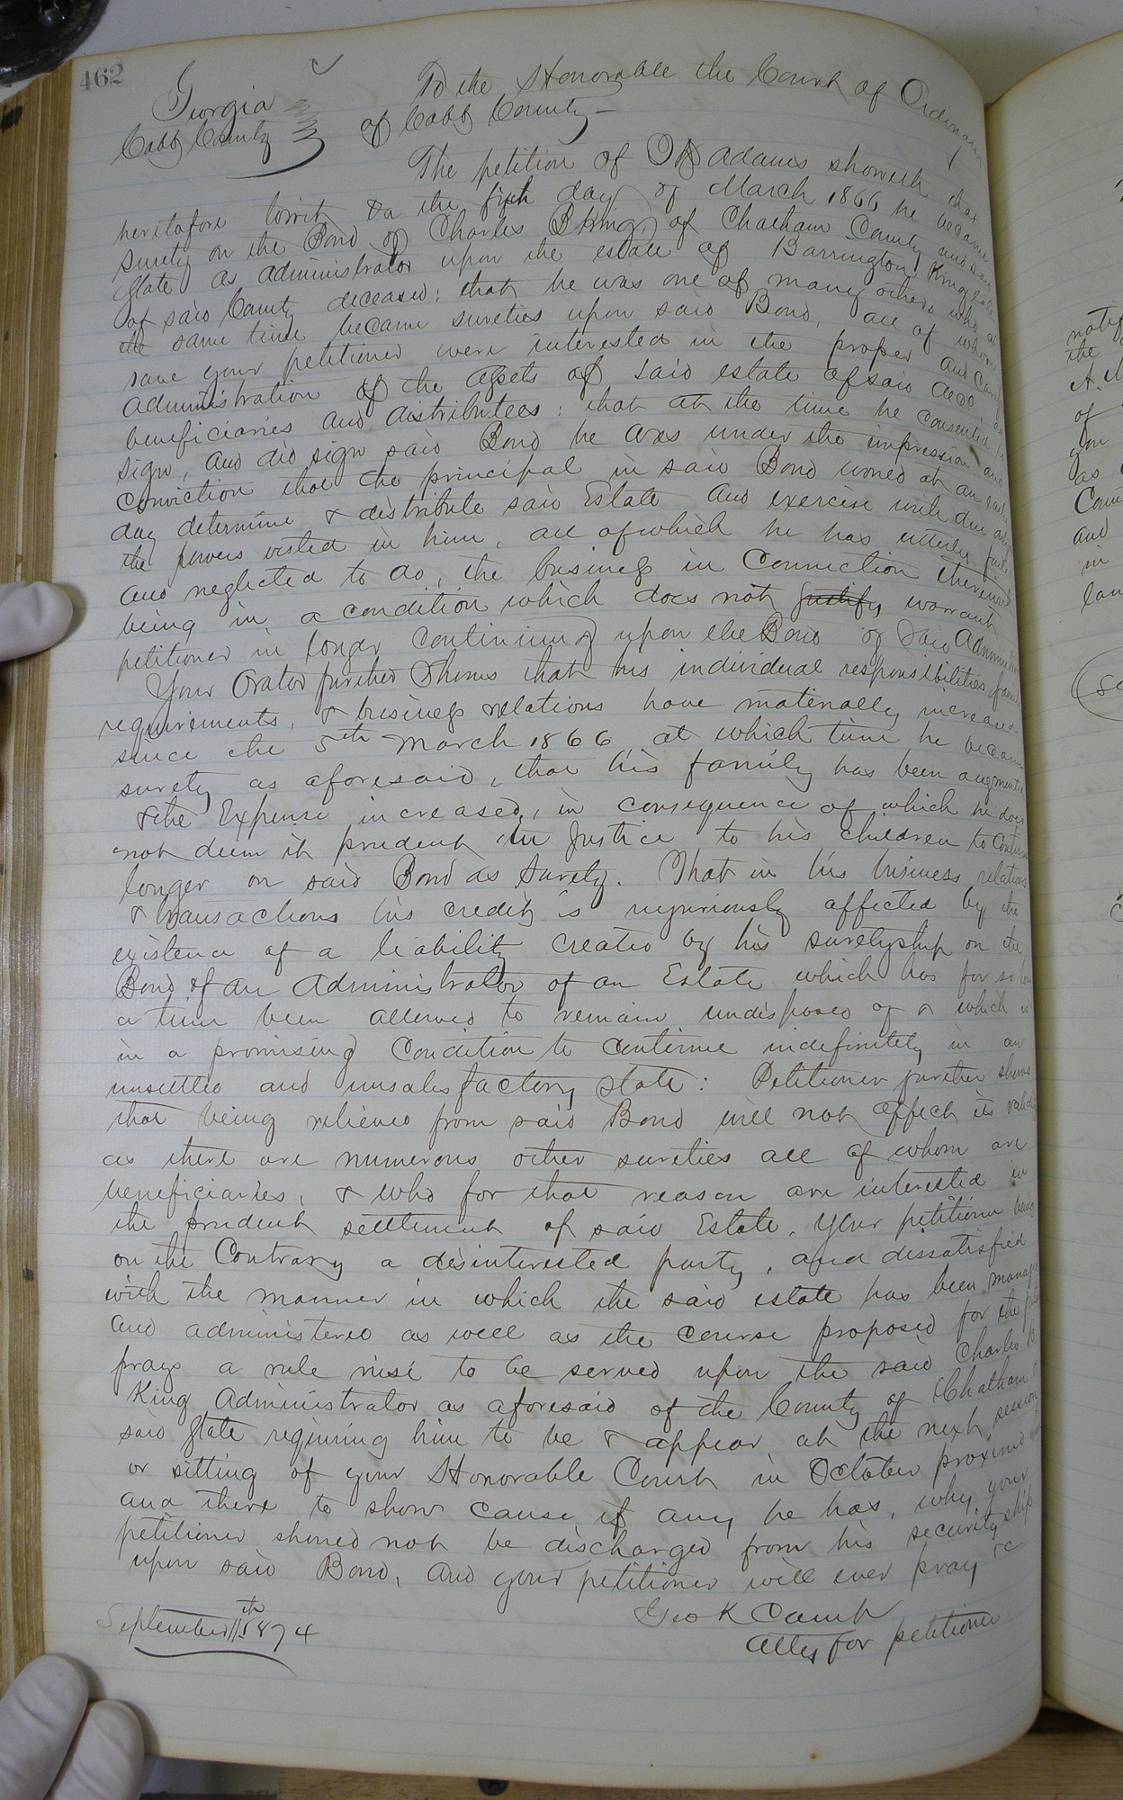 462
Georgia To the Honorable the Court of Ordinary
Cobb County of Cobb County -
The petition of adams showeth that
heretofore towit on the fifth day of March 1866 he became
surety on the Bond of Charles B King, of Chatham County and said
State as administrator upon the estate of Barrington King late
of said County deceased: that he was one of many others who at
the same time became sureties upon said Bond, all of whom
save your petitioner were interested in the proper and
administration of the assets of said estate of said decd as
beneficiaries and distributees: that at the time he consented to
sign, and did sign said Bond he was under the impression and
conviction that the principal in said Bond would at an early
day determine & distribute said Estate and exercise with due
the powers vested in him, all of which he has utterly failed
and neglected to do, the business in connection therewith
being in a condition which does not justify warrant
petitioner in longer continuing upon the Bond of said Administrator
Your Orator further Shows that his individual responsibilities, family
requirements, & business relations have materially increased
since the 5th March 1866 at which time he became
surety as aforesaid, that his family has been augmented
& the Expense increased, in consequence of which he does
not deem it prudent in Justice to his children to continue
longer on said Bond as Surety. That in his business relations
& transactions his credit is injuriously affected by the
existence of a liability created by his suretyship on the
Bond of an Administrator of an Estate which has for so long
a time been allowed to remain undisposed of & which is
in a promising condition to continue indefinitely in an
unsettled and unsatisfactory state: Petitioner further shows
that being relieved from said Bond will not affect its validity
as there are numerous other sureties all of whom are
beneficiaries, & who for that reason are interested in
the prudent settlement of said Estate, your petitioner being
on the Contrary a disinterested party, and dissatisfied
with the manner in which the said estate has been managed
and administered as well as the course proposed for the future
prays a rule nisi to be served upon the said Charles B
King Administrator as aforesaid of the County of Chatham
said State requiring him to be & appear at the next session
or sitting of your Honorable Court in October proximo then
and there to show cause if any he has, why your
petitioner should not be discharged from his securityship
upon said Bond, and your petitioner will ever pray &c
Geo K Camb
September 11th 1874 Atty for petitioner